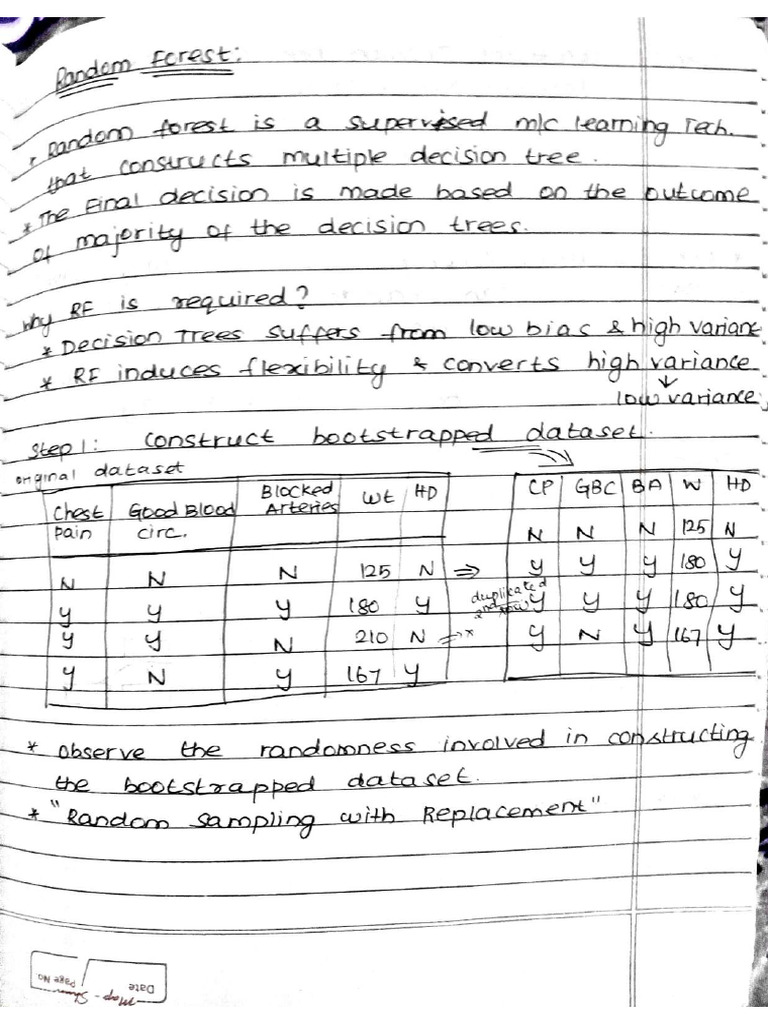 Random Forest:
* Random forest is a supervised m/c learning Tech.
that constructs multiple decision tree.
* The Final decision is made based on the outcome
of majority of the decision trees.
Why RF is required?
* Decision Trees suffers from low bias & high varianc
* RF induces flexibility & converts high variance
↓
low variance
Step 1: Construct bootstrapped dataset.
original dataset
Chest Pain | Good Blood circ. | Blocked Arteries | Wt | HD
N | N | N | 125 | N ⇒
Y | Y | Y | 180 | Y
Y | Y | N | 210 | N → *
Y | N | Y | 167 | Y
duplicated
2nd row
CP | GBC | BA | W | HD
N | N | N | 125 | N
Y | Y | Y | 180 | Y
Y | Y | Y | 180 | Y
Y | N | Y | 167 | Y
* Observe the randomness involved in constructing
the bootstrapped dataset.
* "Random Sampling with Replacement"
Date
Page No